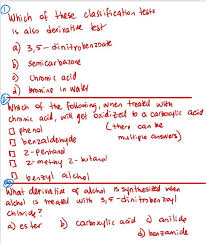 ① Which of these classification tests
is also derivative test
a) 3,5-dinitrobenzoate
b) semicarbazone
c) chromic acid
d) bromine in water
② Which of the following, when treated with
chromic acid, will get oxidized to a carboxylic acid
□ phenol (there can be
□ benzaldehyde multiple answers)
□ 2-pentanol
□ 2-methy 2-butanol
□ benzyl alcohol
③ What derivative of alchol is synthesized when
alchol is treated with 3,5-dinitrobenzoyl
chloride?
a) ester b) carboxylic acid c) anilide
d) benzamide